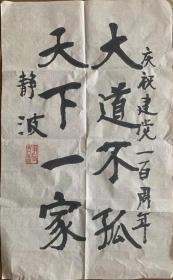 庆祝建党一百周年
大道不孤
天下一家
静波